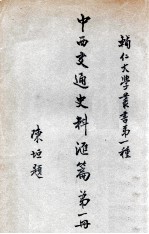 輔仁大學叢書第一種
中西交通史料匯篇 第一册
陳垣題